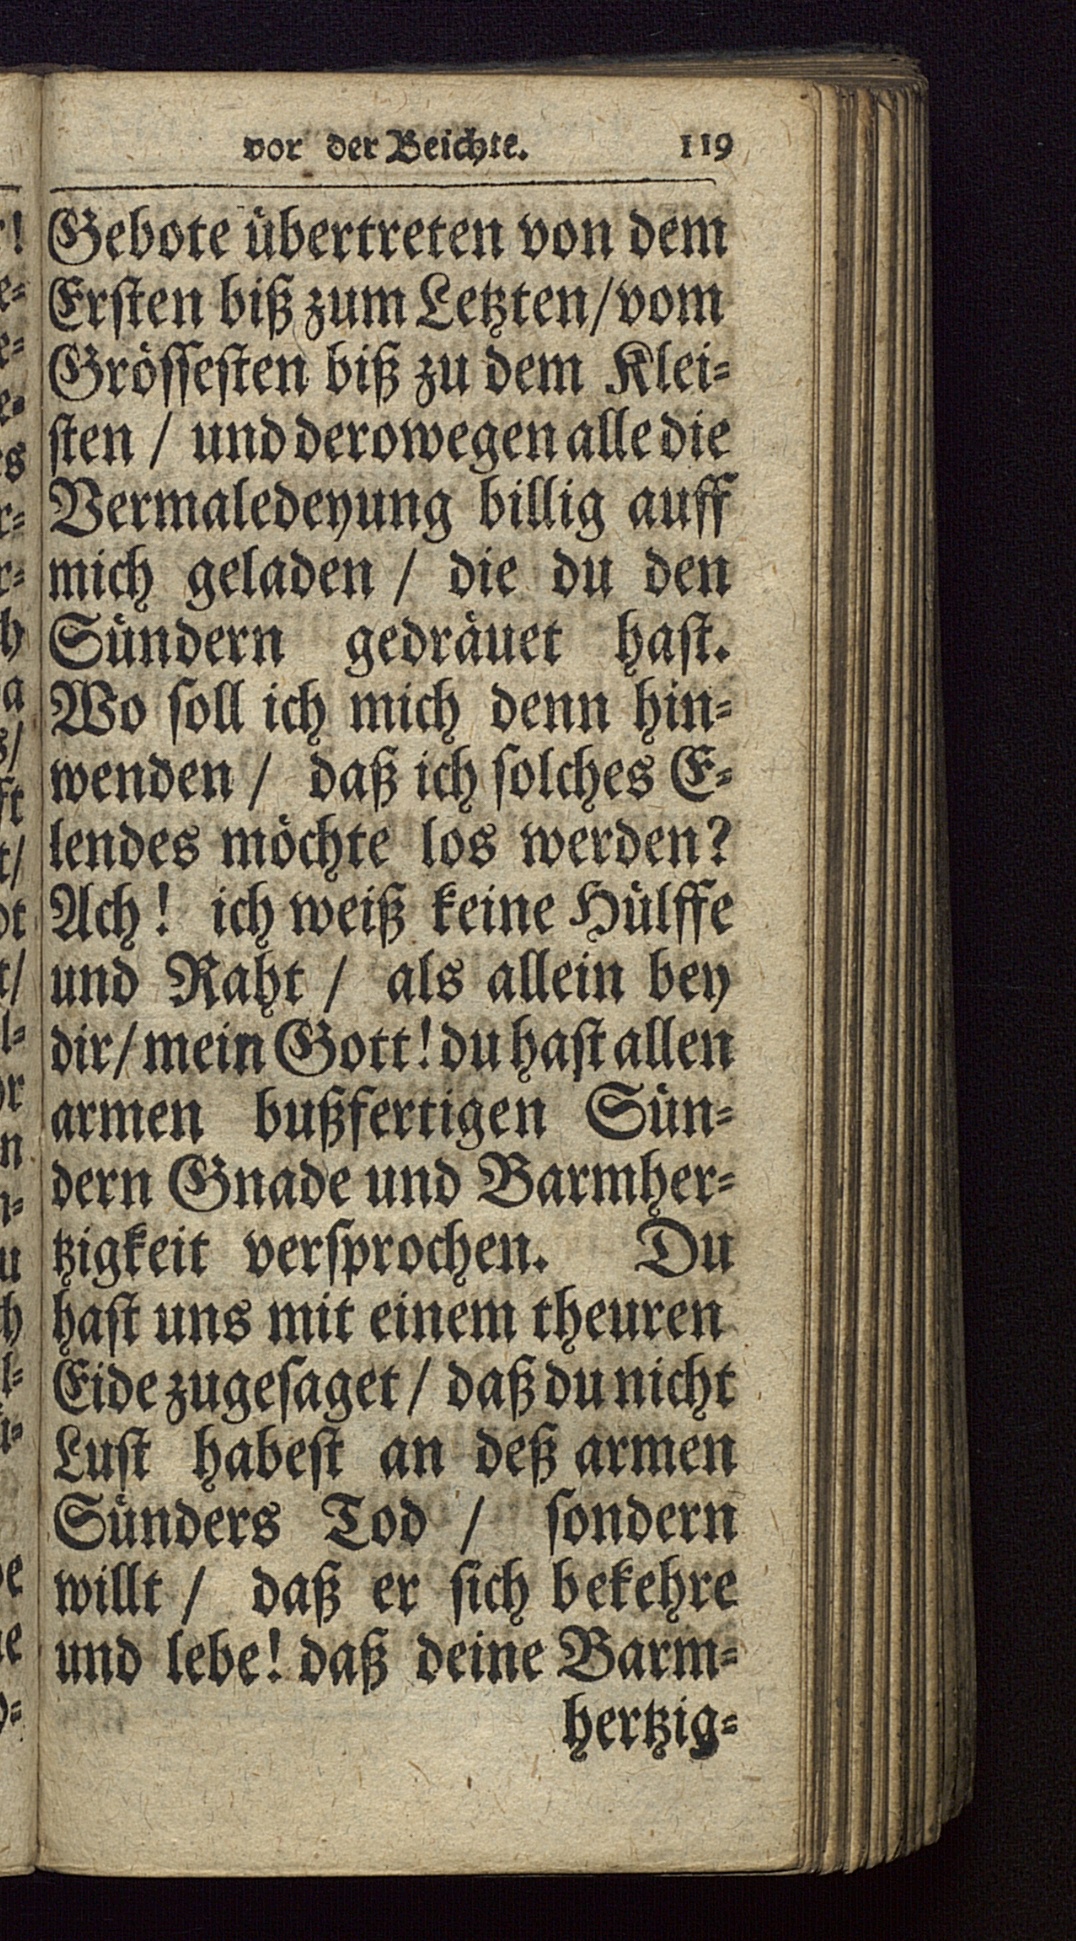 vor der Beichte. 119
Gebote übertreten von dem
Ersten biß zum Letzten/vom
Grössesten biß zu dem Klei-
sten / und derowegen alle die
Vermaledeyung billig auff
mich geladen / die du den
Sündern gedräuet hast.
Wo soll ich mich denn hin-
wenden / daß ich solches E-
lendes möchte los werden?
Ach! ich weiß keine Hülffe
und Raht / als allein bey
dir/mein Gott! du hast allen
armen bußfertigen Sün-
dern Gnade und Barmher-
tzigkeit versprochen. Du
hast uns mit einem theuren
Eide zugesaget / daß du nicht
Lust habest an deß armen
Sünders Tod / sondern
willt / daß er sich bekehre
und lebe! daß deine Barm-
hertzig-